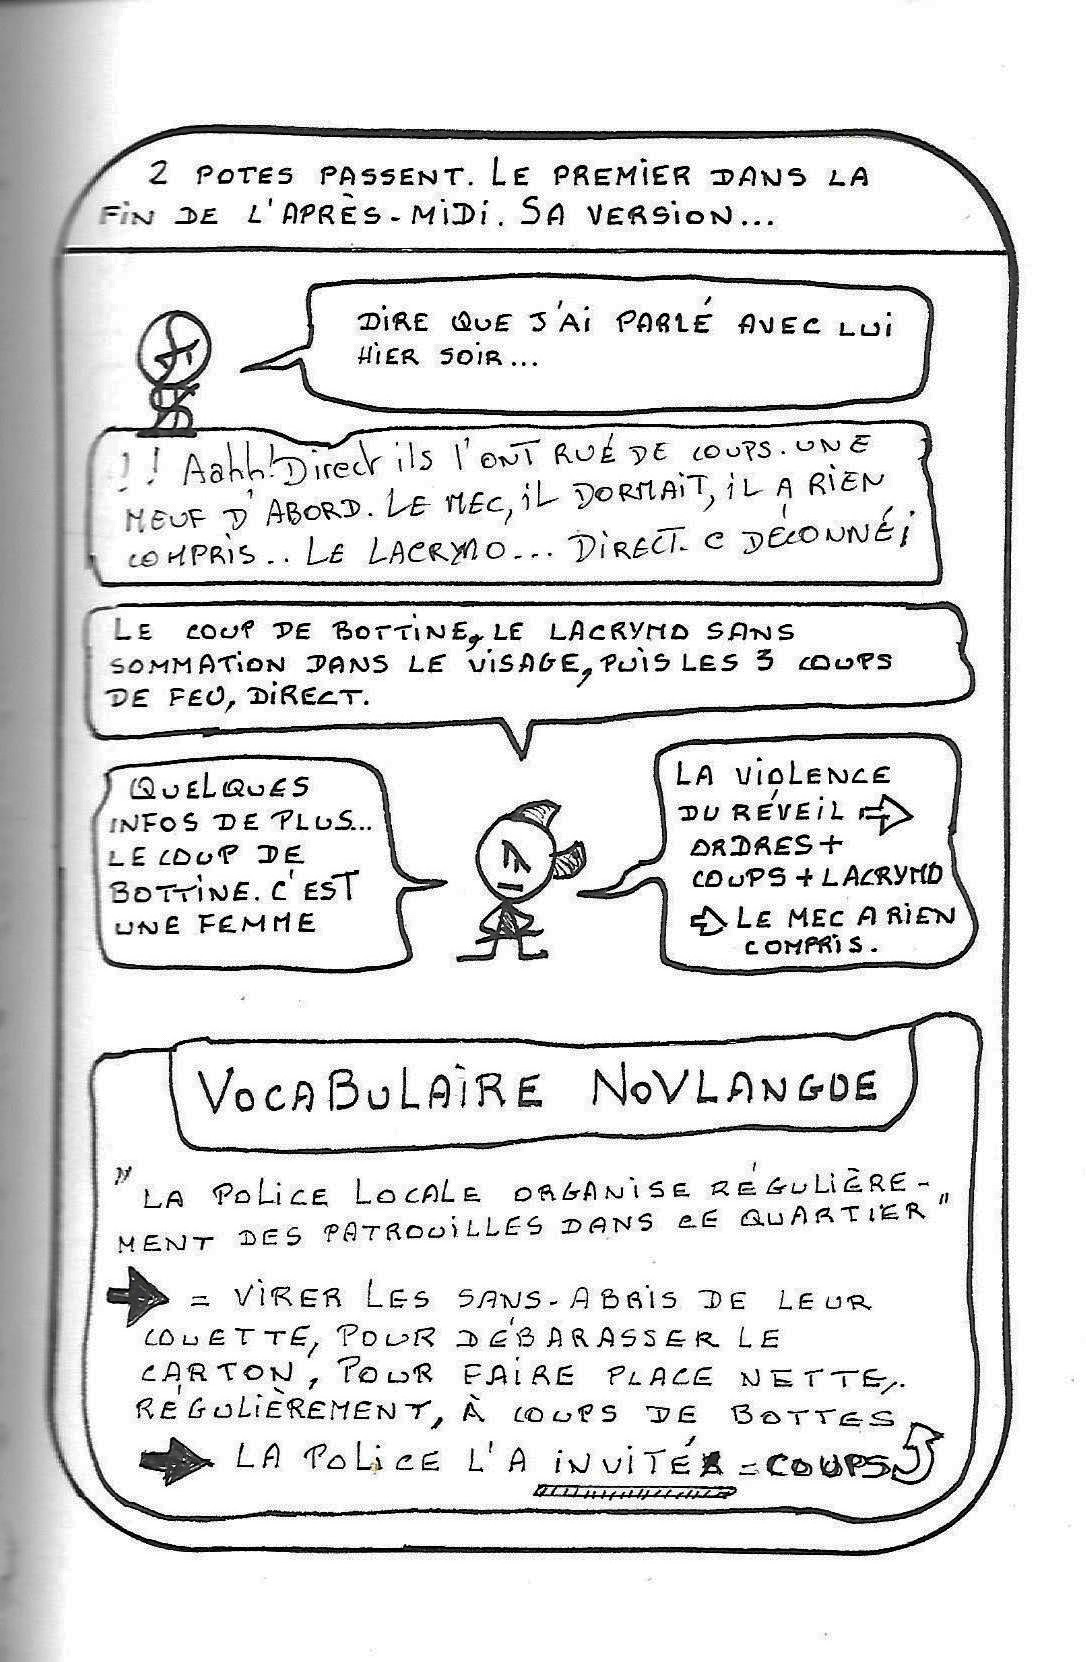 2 POTES PASSENT. LE PREMIER DANS LA
FIN DE L'APRÈS-MIDI. SA VERSION...
DIRE QUE J'AI PARLÉ AVEC LUI
HIER SOIR...
!! Aahh! Direct ils l'ONT RUÉ DE COUPS. UNE
MEUF D'ABORD. LE MEC, IL DORMAIT, IL A RIEN
COMPRIS.. LE LACRYMO... DIRECT. C DÉCONNÉ!
LE COUP DE BOTTINE, LE LACRYMO SANS
SOMMATION DANS LE VISAGE, PUIS LES 3 COUPS
DE FEU, DIRECT.
QUELQUES
INFOS DE PLUS...
LE COUP DE
BOTTINE. C'EST
UNE FEMME
LA VIOLENCE
DU RÉVEIL ⇨
ORDRES +
COUPS + LACRYMO
⇨ LE MEC A RIEN
COMPRIS.
VOCABULAIRE NOVLANGUE
"LA POLICE LOCALE ORGANISE RÉGULIÈRE-
MENT DES PATROUILLES DANS CE QUARTIER"
➡ = VIRER LES SANS-ABRIS DE LEUR
COUETTE, POUR DÉBARASSER LE
CARTON, POUR FAIRE PLACE NETTE,.
RÉGULIÈREMENT, À COUPS DE BOTTES
➡ LA POLICE L'A INVITÉ = COUPS